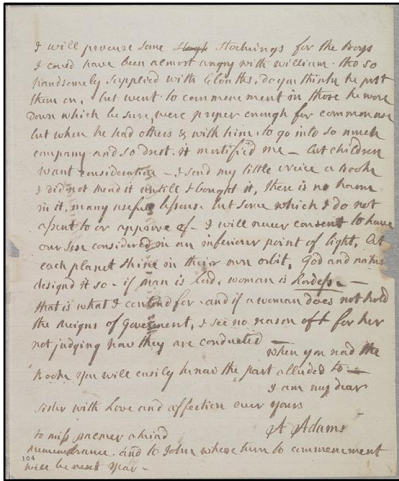 I will procure some Stockings for the Boys
I could have been almost angry with william. tho so
handsomely supplied with Cloaths, do you think he put
them on, but went to commencement in those he wore
down which be sure were proper enough for common use
but when he had others & with him, to go into so much
company and so drest. it mortified me — but children
want consideration — I send my little Neice a Booke
I did not read it untill I bought it, there is no harm
in it, many usefull lessons but some which I do not
assent to or approve of — I will never consent to have
our Sex considered in an inferiour point of light, Let
each planet shine in their own orbit, God and nature
designd it so — if man is Lord, woman is Lordess —
that is what I contend for. and if a woman does not hold
the Reigns of Goverment, I see no reason for her
not judging how they are conducted —
when you read the
Booke you will easily know the part alluded to —
I am my dear
Sister with Love and affection ever yours
A Adams
to miss palmer a kind
remembrance. and to John whose turn to commencement
will be next year —
104